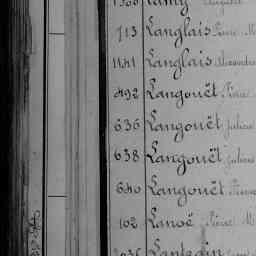 713 Langlais Pierre M
1141 Langlais Alexandre
492 Langouët Pierre
636 Langouët Julien
638 Langouët Julien
640 Langouët Pierre
102 Lanoë Pierre M
Lantegin